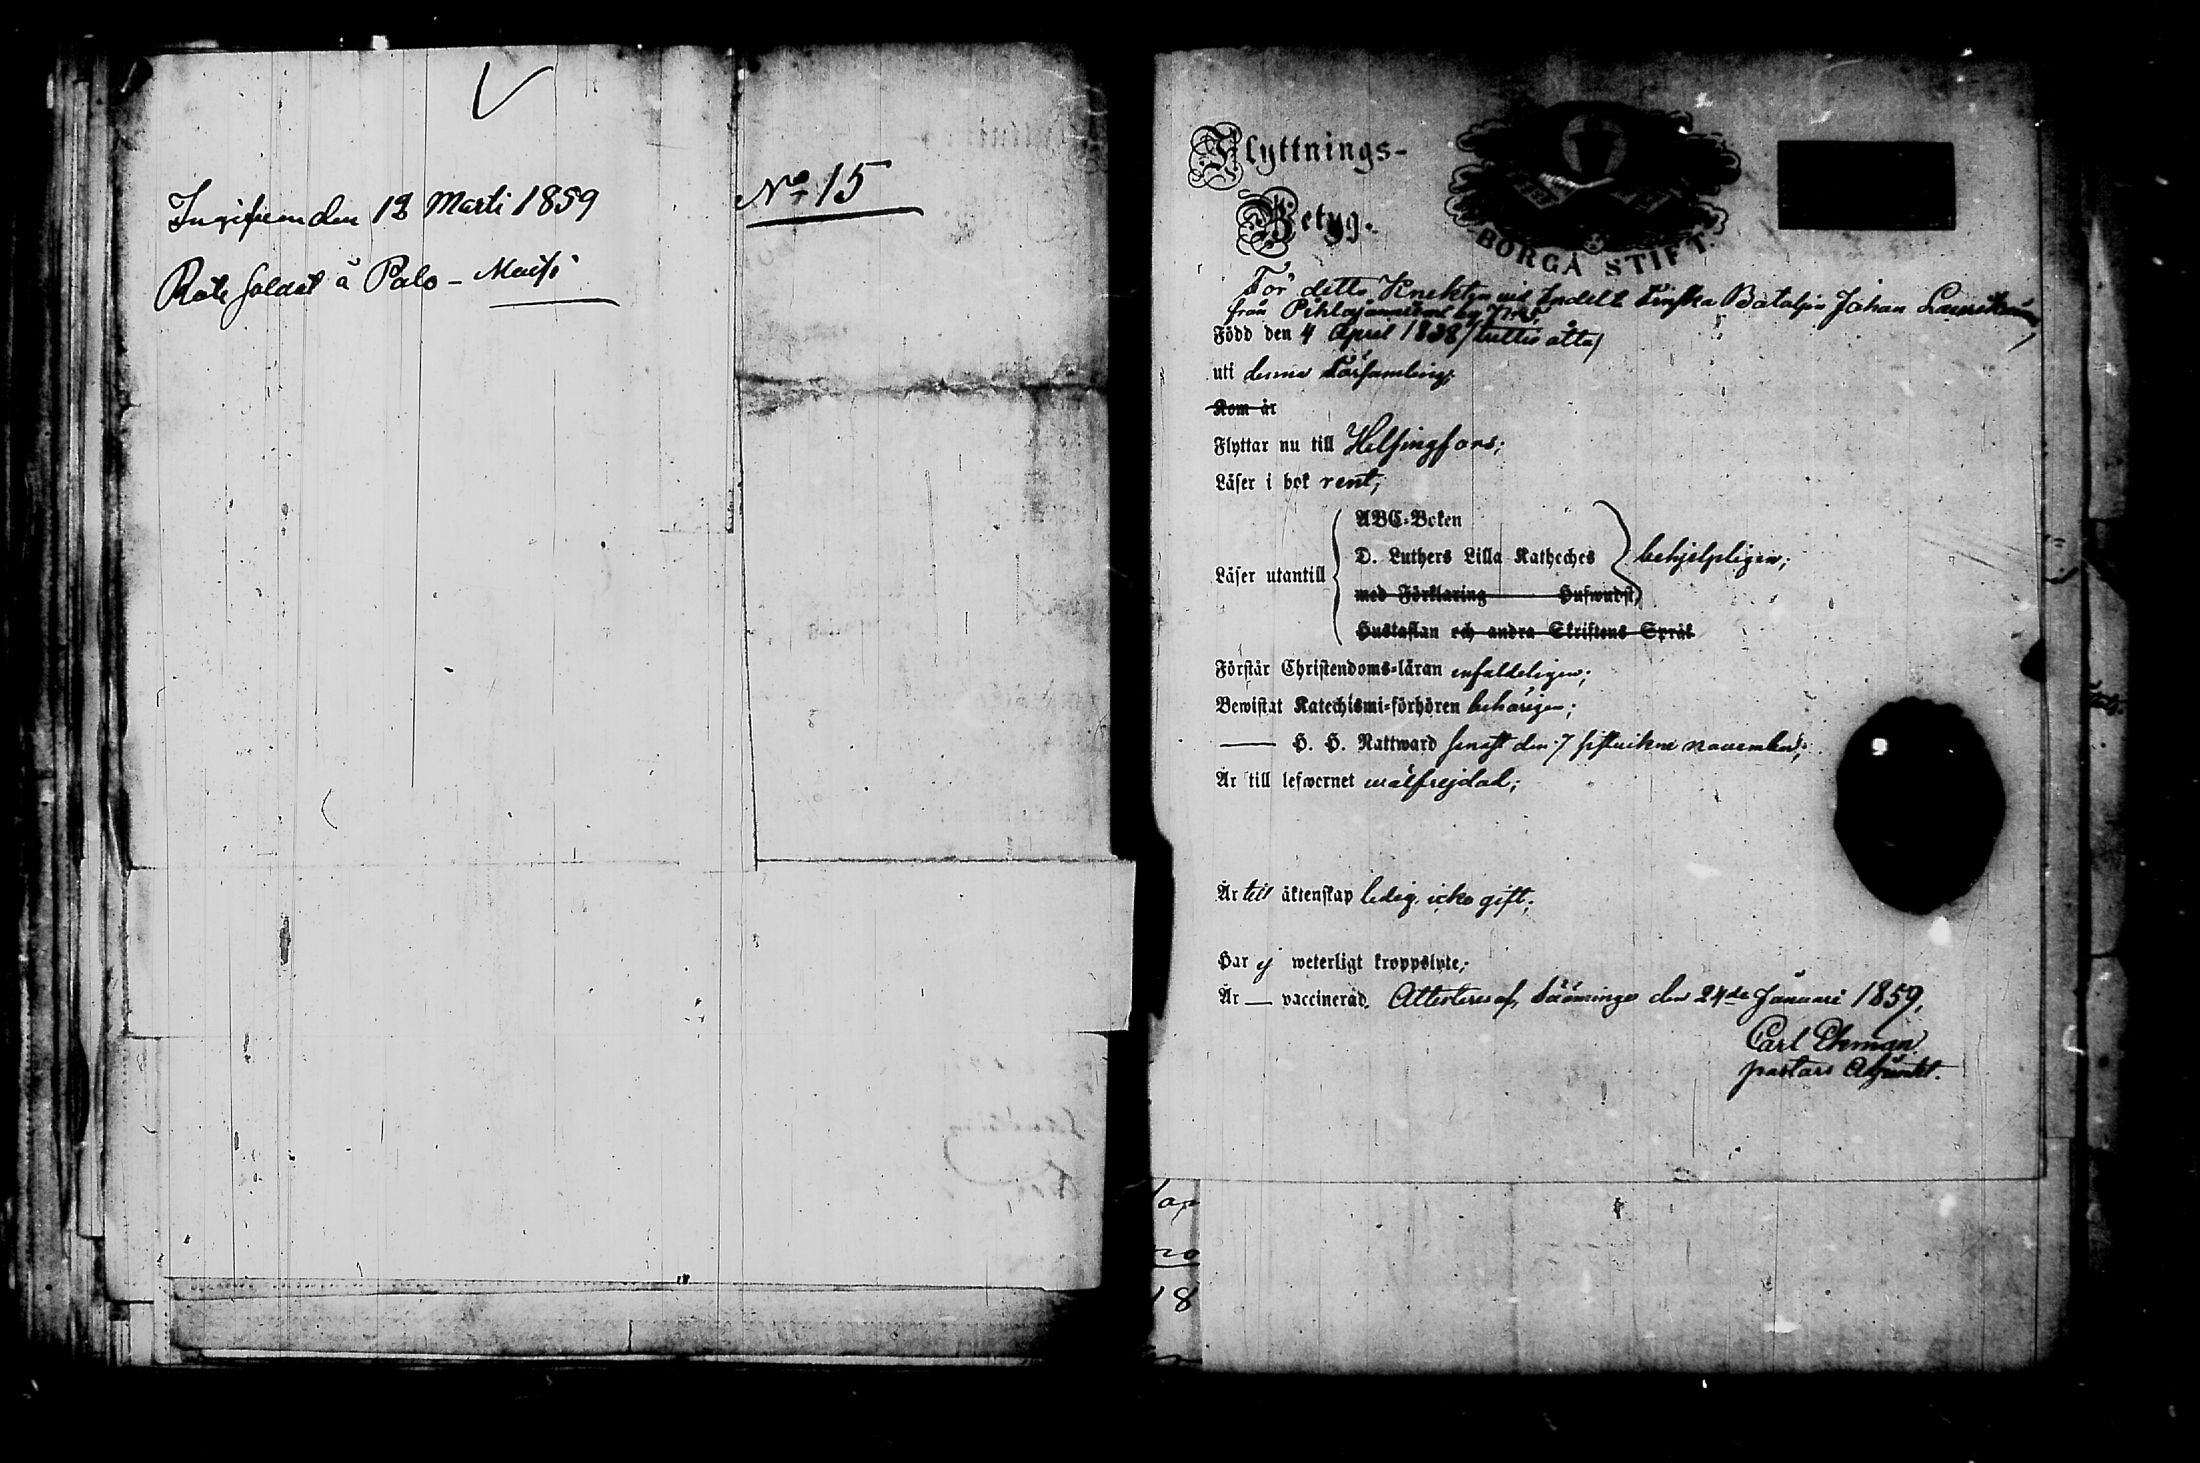 Ingifven den 12 Marti 1859
Rote Soldat å Palo-
No 15
Flyttnings-
Betyg.
BORGÅ STIFT.
För detta Knekten vid Indelt Finska Bataljon Johan
från by No 5
Född den 4 April 1838 /trettio åtta/
uti denna Församling;
Kom år
Flyttar nu till Helsingfors;
Läser i bok rent;
ABC-Boken
D. Luthers Lilla Katheches behjelpligen;
Läser utantill
med Förklaring Hufwudst.
Hustaflan och andra Skriftens Språk
Förstår Christendoms-läran enfaldeligen;
Bewistat Katechismi-förhören behörigen;
— H. H. Nattward senast den 7 sistvikne november;
Är till lefwernet wälfrejdad;
Är till äktenskap ledig, icke gift;
Har ej weterligt kroppslyte;
Är — vaccinerad. Attesteras af, Sääminge den 24de Januari 1859,
Carl Ekman
pastors Adjunkt.
18